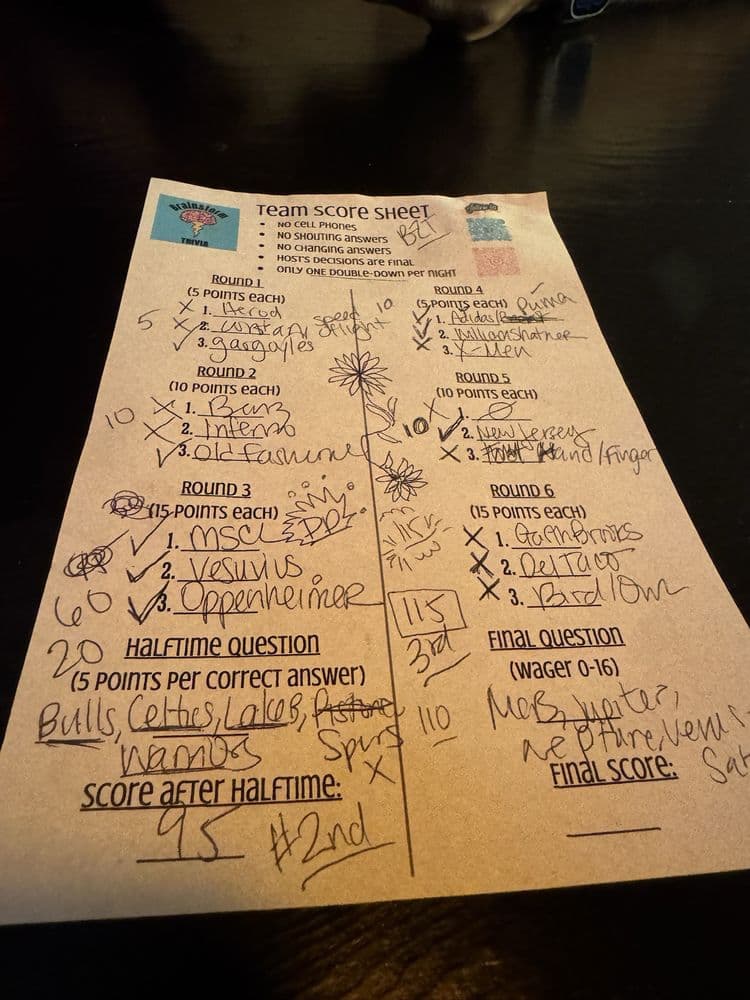 Brainstorm
TRIVIA
Team Score Sheet
BZT
• NO CELL PHONES
• NO SHOUTING answers
• NO CHANGING answers
• HOST'S DECISIONS are FINAL
• ONLY ONE DOUBLE-DOWN Per NIGHT
ROUND 1
(5 POINTS each)
5
X 1. Herod
X 2. constant speed of light
✓ 3. gargoyles
ROUND 2
(10 POINTS each)
10
X 1. Barb
X 2. Inferno
✓ 3. Old Fashioned
ROUND 3
(15 POINTS each)
DD!
✓ 1. MSCL
✓ 2. Vesuvius
60
✓ 3. Oppenheimer
20
HALFTIME QUESTION
(5 POINTS Per correct answer)
Bulls, Celtics, Lakers,
Warriors Spurs
X
Score after Halftime:
95 #2nd
ROUND 4
(5 POINTS each)
10
Puma
✓ 1. Adidas/
✓ 2. William Shatner
X 3. X-Men
ROUND 5
(10 POINTS each)
10
X 1. Ø
✓ 2. New Jersey
X 3. Hand/Finger
ROUND 6
(15 POINTS each)
115
X 1. Garth Brooks
X 2. Del Taco
X 3. Bird/Owl
115
3rd
110
FINAL QUESTION
(WAGER 0-16)
Mars, Jupiter,
Neptune, Venus
Sat
FINAL SCORE: